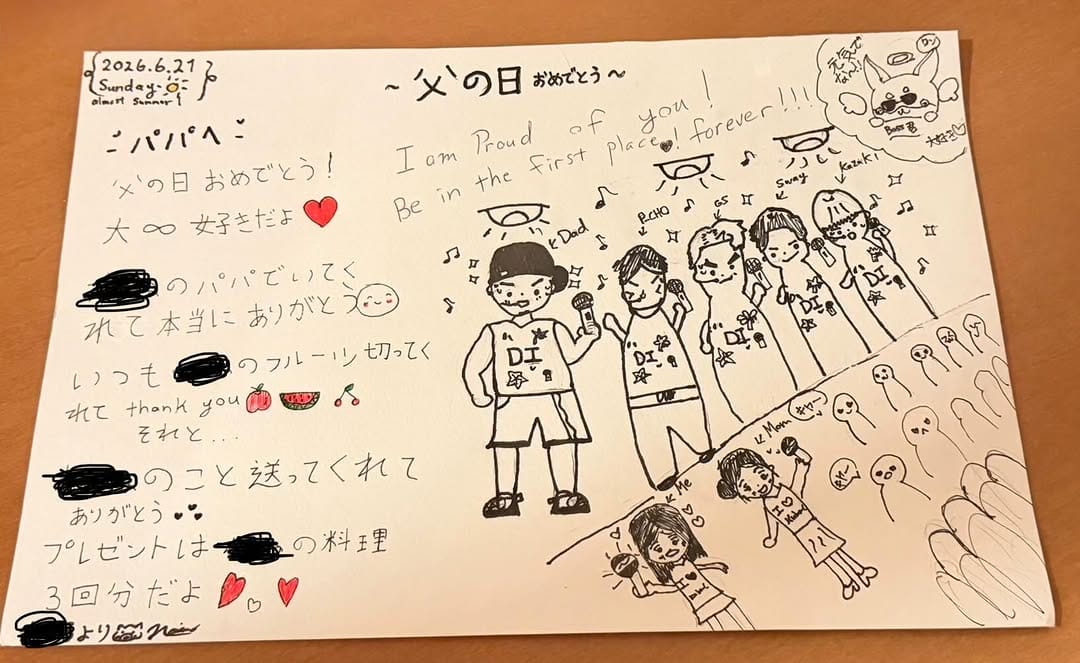 2026.6.21
Sunday
almost summer!
~父の日おめでとう~
パパへ
父の日おめでとう!
大∞好きだよ
のパパでいてく
れて本当にありがとう
いつも のフルーツ切ってく
れて thank you
それと...
のこと送ってくれて
ありがとう
プレゼントは の料理
3回分だよ
より
I am Proud of you!
Be in the first place! forever!!!
元気で
なん!!
Boss君
大好き
Dad
P-CHO
GS
Sway
Kazuki
DI
DI
DI
DI
DI
Me
Mom
キャー
I
I